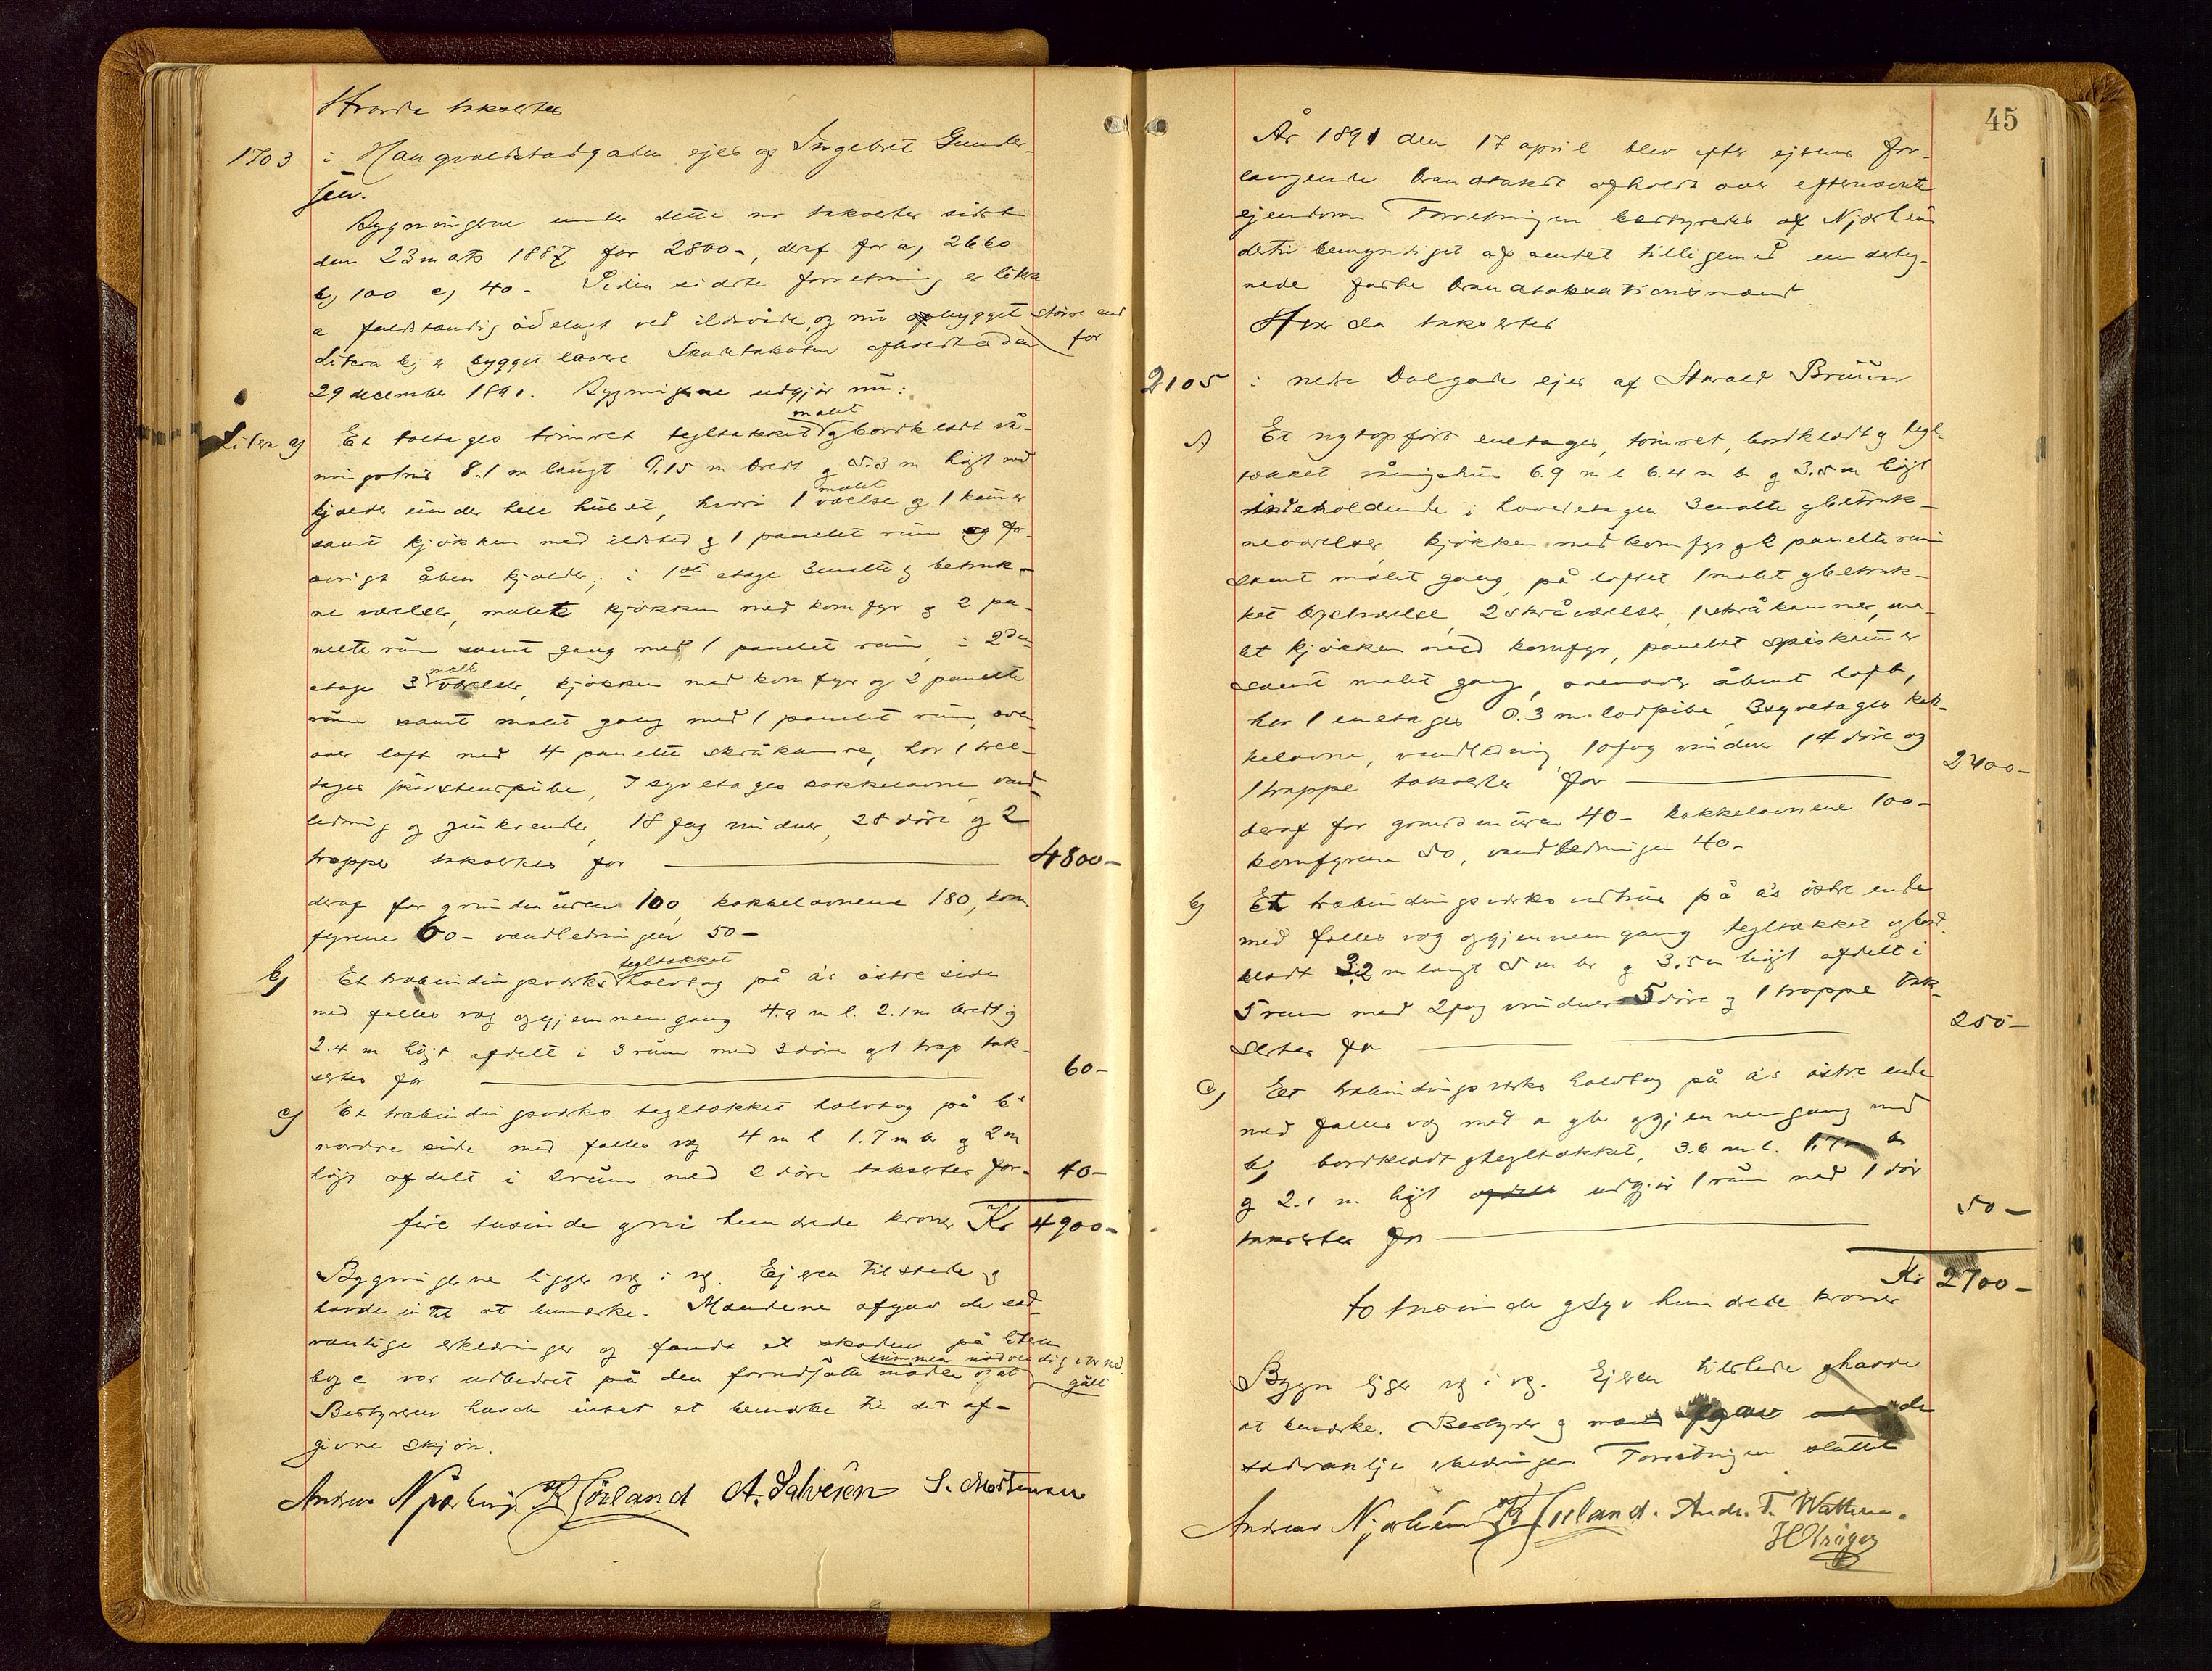 Hvorda taksertes
1703 i Haugvaldstadgaden ejes af Ingebret Gunder-
sen.
Bygningerne under dette no taksertes sidst
den 23 mats 1887 for 2800-, deraf for a, 2660
b, 100 c, 40 - Siden sidste forretning er litra
a fuldstændig ødelagt ved ildsvåde, og nu opbygget større end
Litera b, er bygget lavere. Skadetaksten afholdt den før
29 december 1890. Bygningerne udgjør nu:
Litera a) Et toetages tømret tegltakket malet og bordklædt vå-
ningshus 8.1 m langt 9.15 m bredt og 5.3 m højt med
kjælder under hele huset, hvori 1 malet værelse og 1 kammer
samt kjøkken med ildsted og 1 panelet rum og for-
øvrigt åben kjælder; i 1ste etage 3 malte og betruk-
ne værelser, malet kjøkken med komfyr og 2 pa-
nelte rum samt gang med 1 panelet rum, i 2den
etage 3 malte værelser, kjøkken med komfyr og 2 panelte
rum samt malet gang med 1 panelet rum, oven
over loft med 4 panelte skråkamre, har 1 tree-
tages murstenspibe, 7 syvetages kakkelovne, vand-
ledning og zinkrender, 18 fag vinduer, 28 døre og 2
trapper taksertes for 4800-
deraf for grundmuren 100, kakkelovnene 180, kom-
fyrene 60- vandledningen 50-
b) Et træbindingsverks tegltakket halvtag på a's østre side
med fælles væg og gjennemgang 4.9 m l. 2.1 m bredt og
2.4 m højt afdelt i 3 rum med 3 døre og 1 trap tak-
sertes for 60-
c) Et træbindingsverks tegltakket halvtag på b's
nordre side med fælles væg 4 m l 1.7 m br og 2 m
højt afdelt i 2 rum med 2 døre taksertes for- 40-
fire tusinde og ni hundrede kroner Kr 4900-
Bygningerne ligger væg i væg. Ejeren tilstede og
havde intet at bemærke. Mændene afgav de sæd-
vanlige erklæringer og fandt at skaden på litera
b og c var udbedret på den forudsatte måde og at summen nødvendig var med-
gået
Bestyreren havde intet at bemærke til det af-
givne skjøn.
Andreas Njærheim K Hörland A. Salvesen S. Mortensen
45
År 1891 den 17 april blev efter ejerens for-
langende brandtakst afholdt over efternævnte
ejendom Forretningen bestyredes af Njærheim
dertil bemyndiget af amtet tilligemed underteg-
nede faste brandtaksationsmænd
Hvorda taksertes
2105 i nedre Dalgade ejes af Harald Bruun
a) Et nyt opført enetages, tømret, bordklædt og tegl-
takket våningshus 6.9 m l 6.4 m b og 3.5 m højt
indeholdende i hovedetagen 3 malte og betruk-
neværelser, kjøkken med komfyr og 2 panelte rum
samt malet gang, på loftet 1 malet og betruk-
ket værelse, 2 skråværelser, 1 skråkammer, ma-
let kjøkken med komfyr, panelet spiskammer
samt malet gang, ovenover åbent loft,
har 1 enetages 0.3 m. lodpibe, 3 syvetages kak-
kelovne, vandledning, 10 fag vinduer 14 døre og
1 trappe taksertes for 2400-
deraf for grundmuren 40- kakkelovnene 100-
komfyrene 50, vandledningen 40-
b) Et træbindingsverks udhus på a's østre ende
med fælles væg og gjennemgang tegltakket og bord-
klædt 3.2 m langt 5 m br og 3.5 m højt afdelt i
5 rum med 2 fag vinduer 5 døre og 1 trappe tak-
sertes for 250-
c) Et træbindingsverks halvtag på a's østre ende
med fælles væg med a og b og gjennemgang med
b, bordklædt og tegltakket, 3.6 m l. 1.7 m b
og 2.1 m. højt afdelt udgjør 1 rum med 1 dør
taksertes for 50-
Kr 2700-
to tusinde og syv hundrede kroner
Bygn ligger væg i væg. Ejeren tilstede og havde
at bemærke. Bestyrer og mænd afgav de
sædvanlige erklæringer. Forretningen sluttet
Andreas Njærheim K Hörland. Andr. T. Watthne.
H Kröger